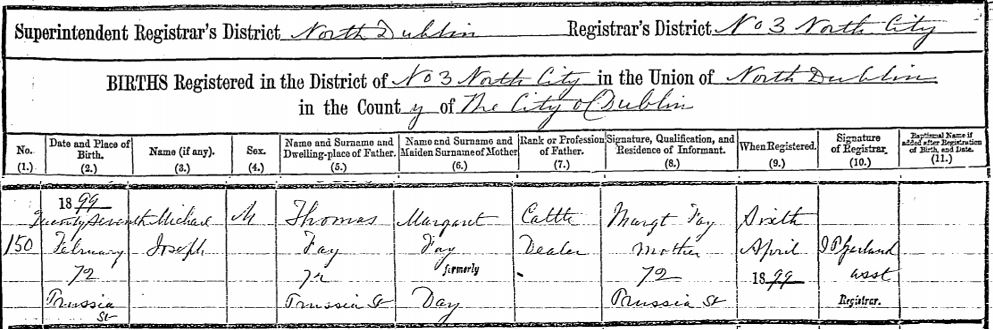 Superintendent Registrar's District North Dublin Registrar's District No 3 North City
BIRTHS Registered in the District of No 3 North City in the Union of North Dublin
in the County of The City of Dublin
No. (1.) Date and Place of Birth. (2.) Name (if any). (3.) Sex. (4.) Name and Surname and Dwelling-place of Father. (5.) Name and Surname and Maiden Surname of Mother (6.) Rank or Profession of Father. (7.) Signature, Qualification, and Residence of Informant. (8.) When Registered. (9.) Signature of Registrar. (10.) Baptismal Name if added after Registration of Birth, and Date. (11.)
1899
Twenty Seventh Michael M Thomas Margaret Cattle Margt Fay Sixth
150 February Joseph Fay Fay Dealer Mother April
72 72 formerly 72 1899 asst
Prussia St Prussia St Day Prussia St Registrar.